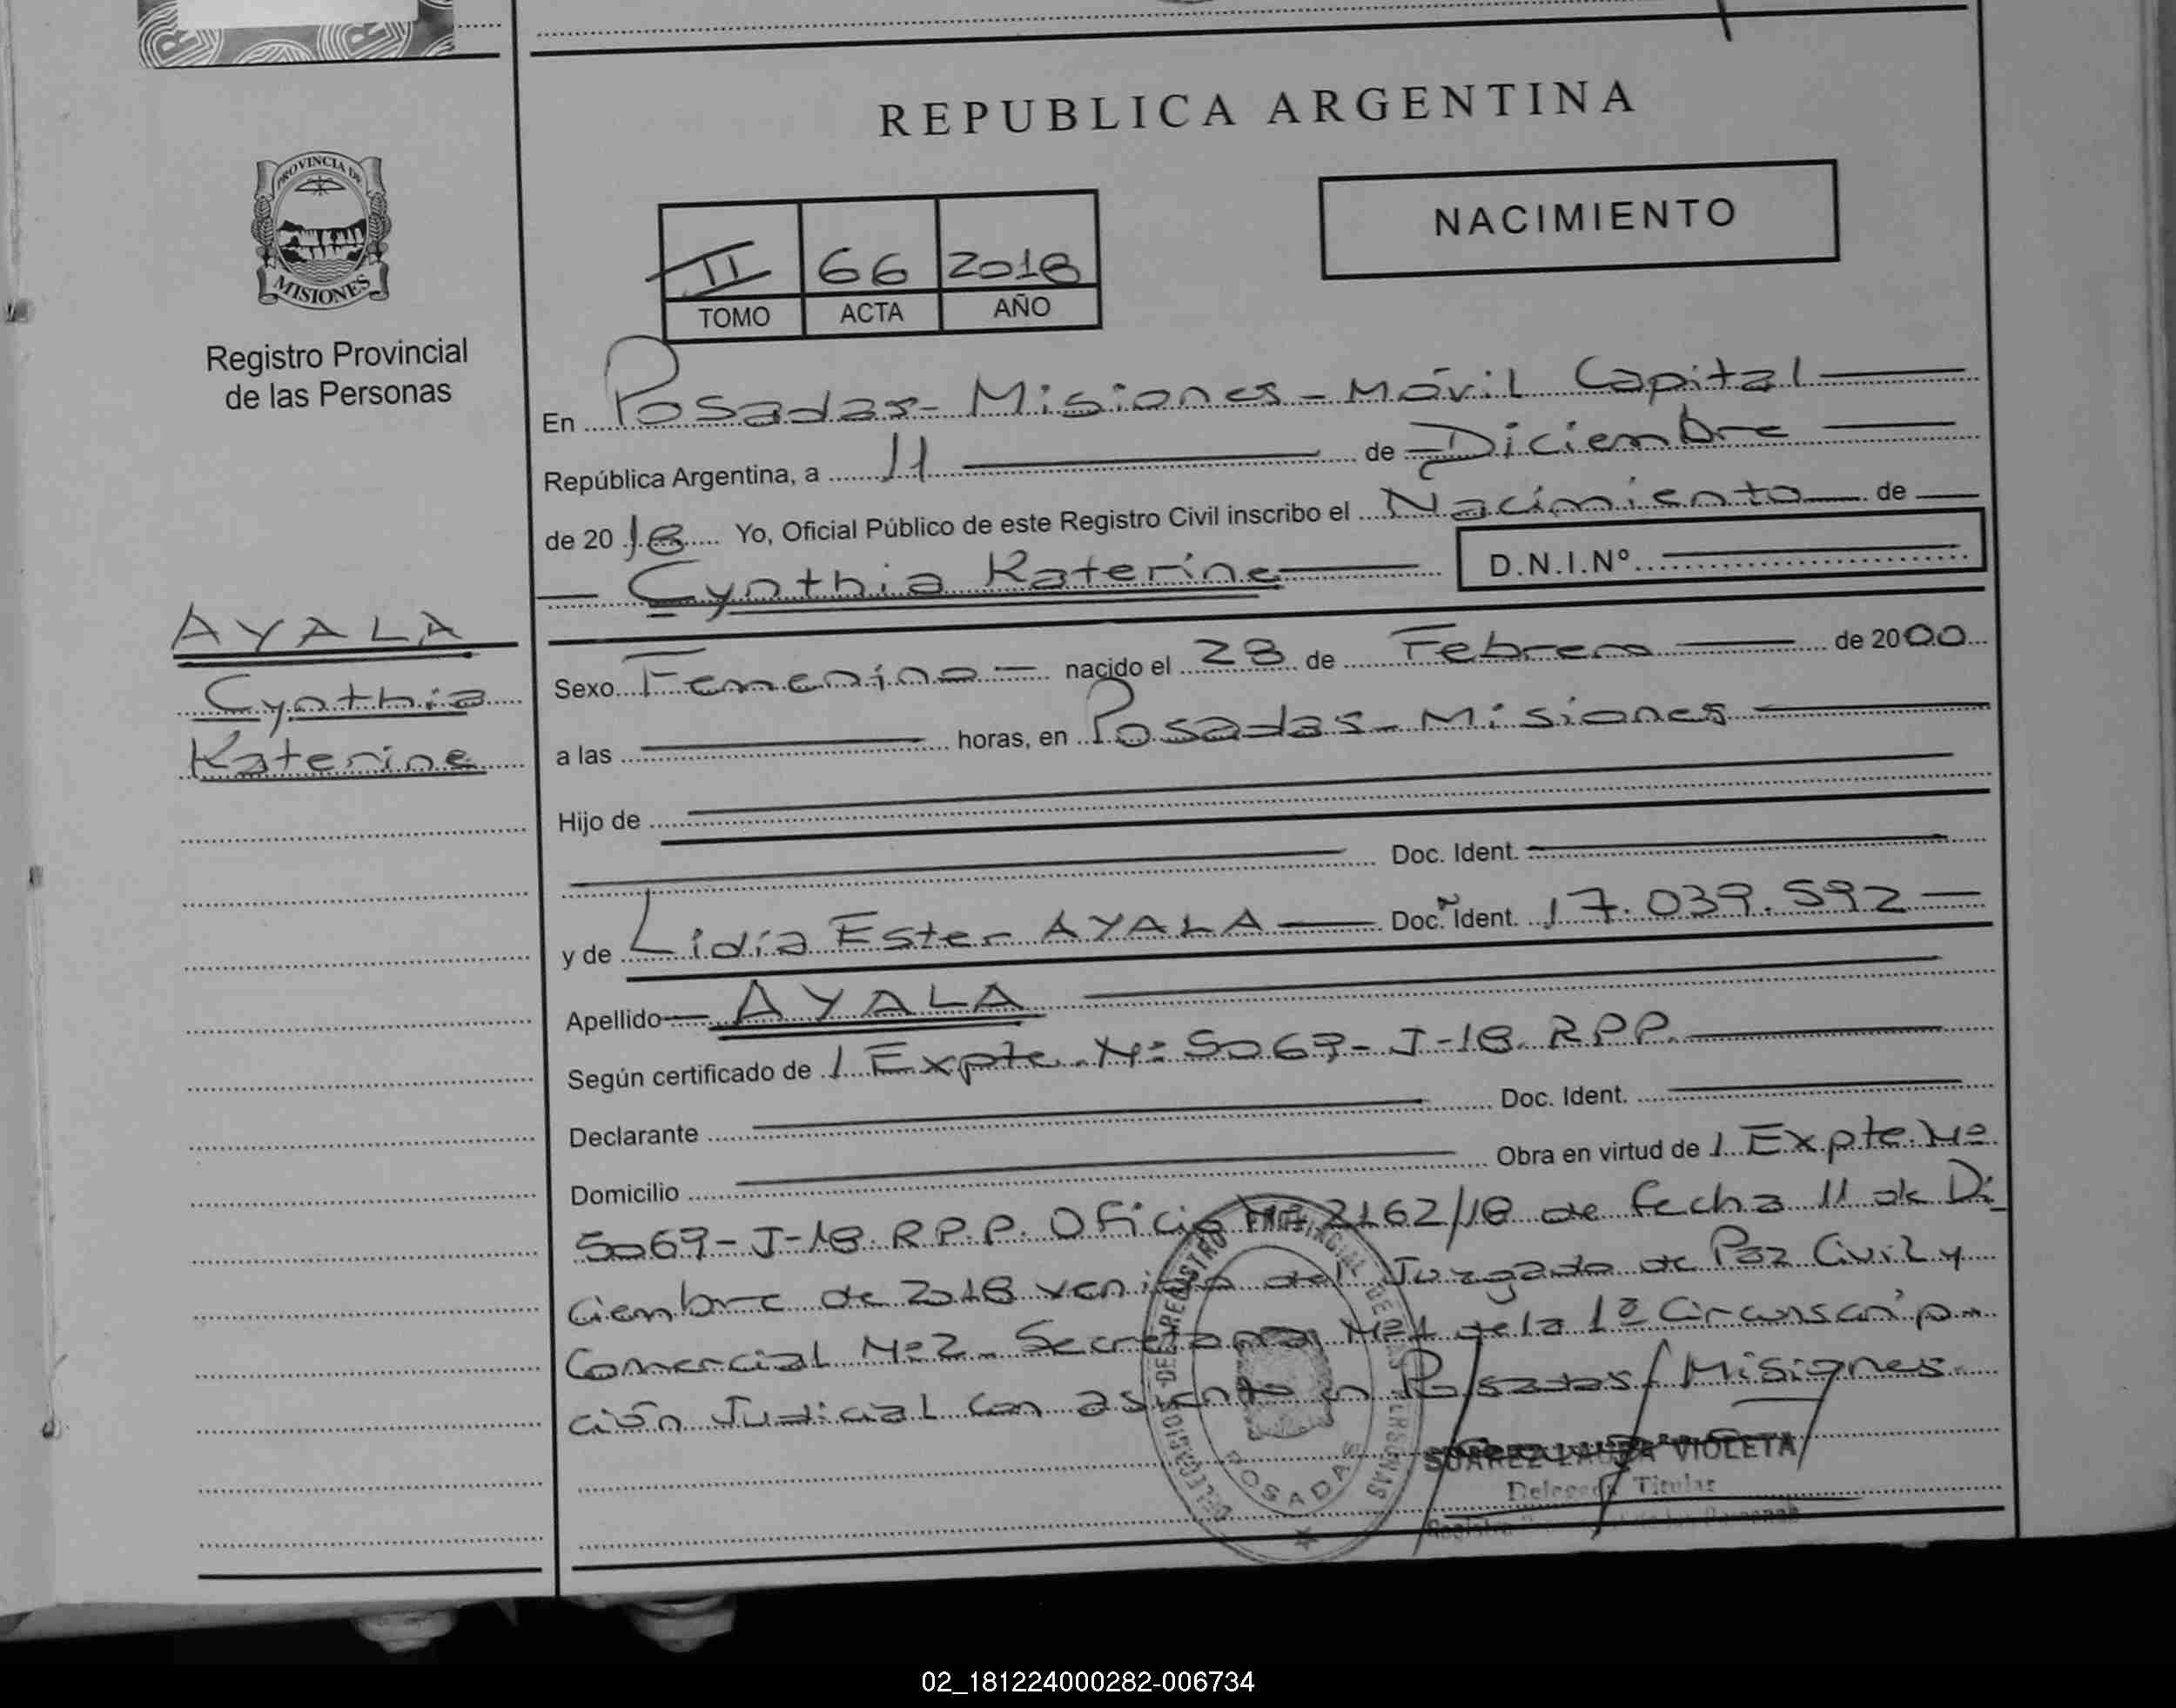 REPUBLICA ARGENTINA
PROVINCIA DE
MISIONES
Registro Provincial
de las Personas
NACIMIENTO
II 66 2018
TOMO ACTA AÑO
En Posadas - Misiones - Móvil Capital
República Argentina, a 11 de Diciembre
de 2018 Yo, Oficial Público de este Registro Civil inscribo el Nacimiento de
Cynthia Katerine D.N.I.Nº
AYALA
Cynthia
Katerine
Sexo Femenino nacido el 28 de Febrero de 2000
a las horas, en Posadas - Misiones
Hijo de
Doc. Ident.
y de Lidia Ester AYALA Doc. Ident. 17.039.592
Apellido AYALA
Según certificado de / Expte. Nº 5069-J-18. RPP.
Declarante Doc. Ident.
Domicilio Obra en virtud de / Expte. Nº
5069-J-18. R.P.P. Oficio Nº 2162/18 de fecha 11 de Di_
ciembre de 2018 venido del Juzgado de Paz Civil y
Comercial Nº 2 - Secretaria Nº 1 de la 1º Circunscrip_
ción Judicial con asiento en Posadas Misiones.
POSADAS
SUAREZ LAURA VIOLETA
Delegada Titular
02_181224000282-006734